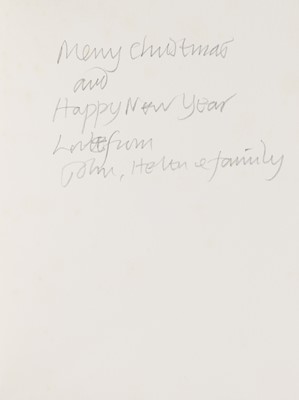 Merry Christmas
and
Happy New Year
Love from
John, Helen & family